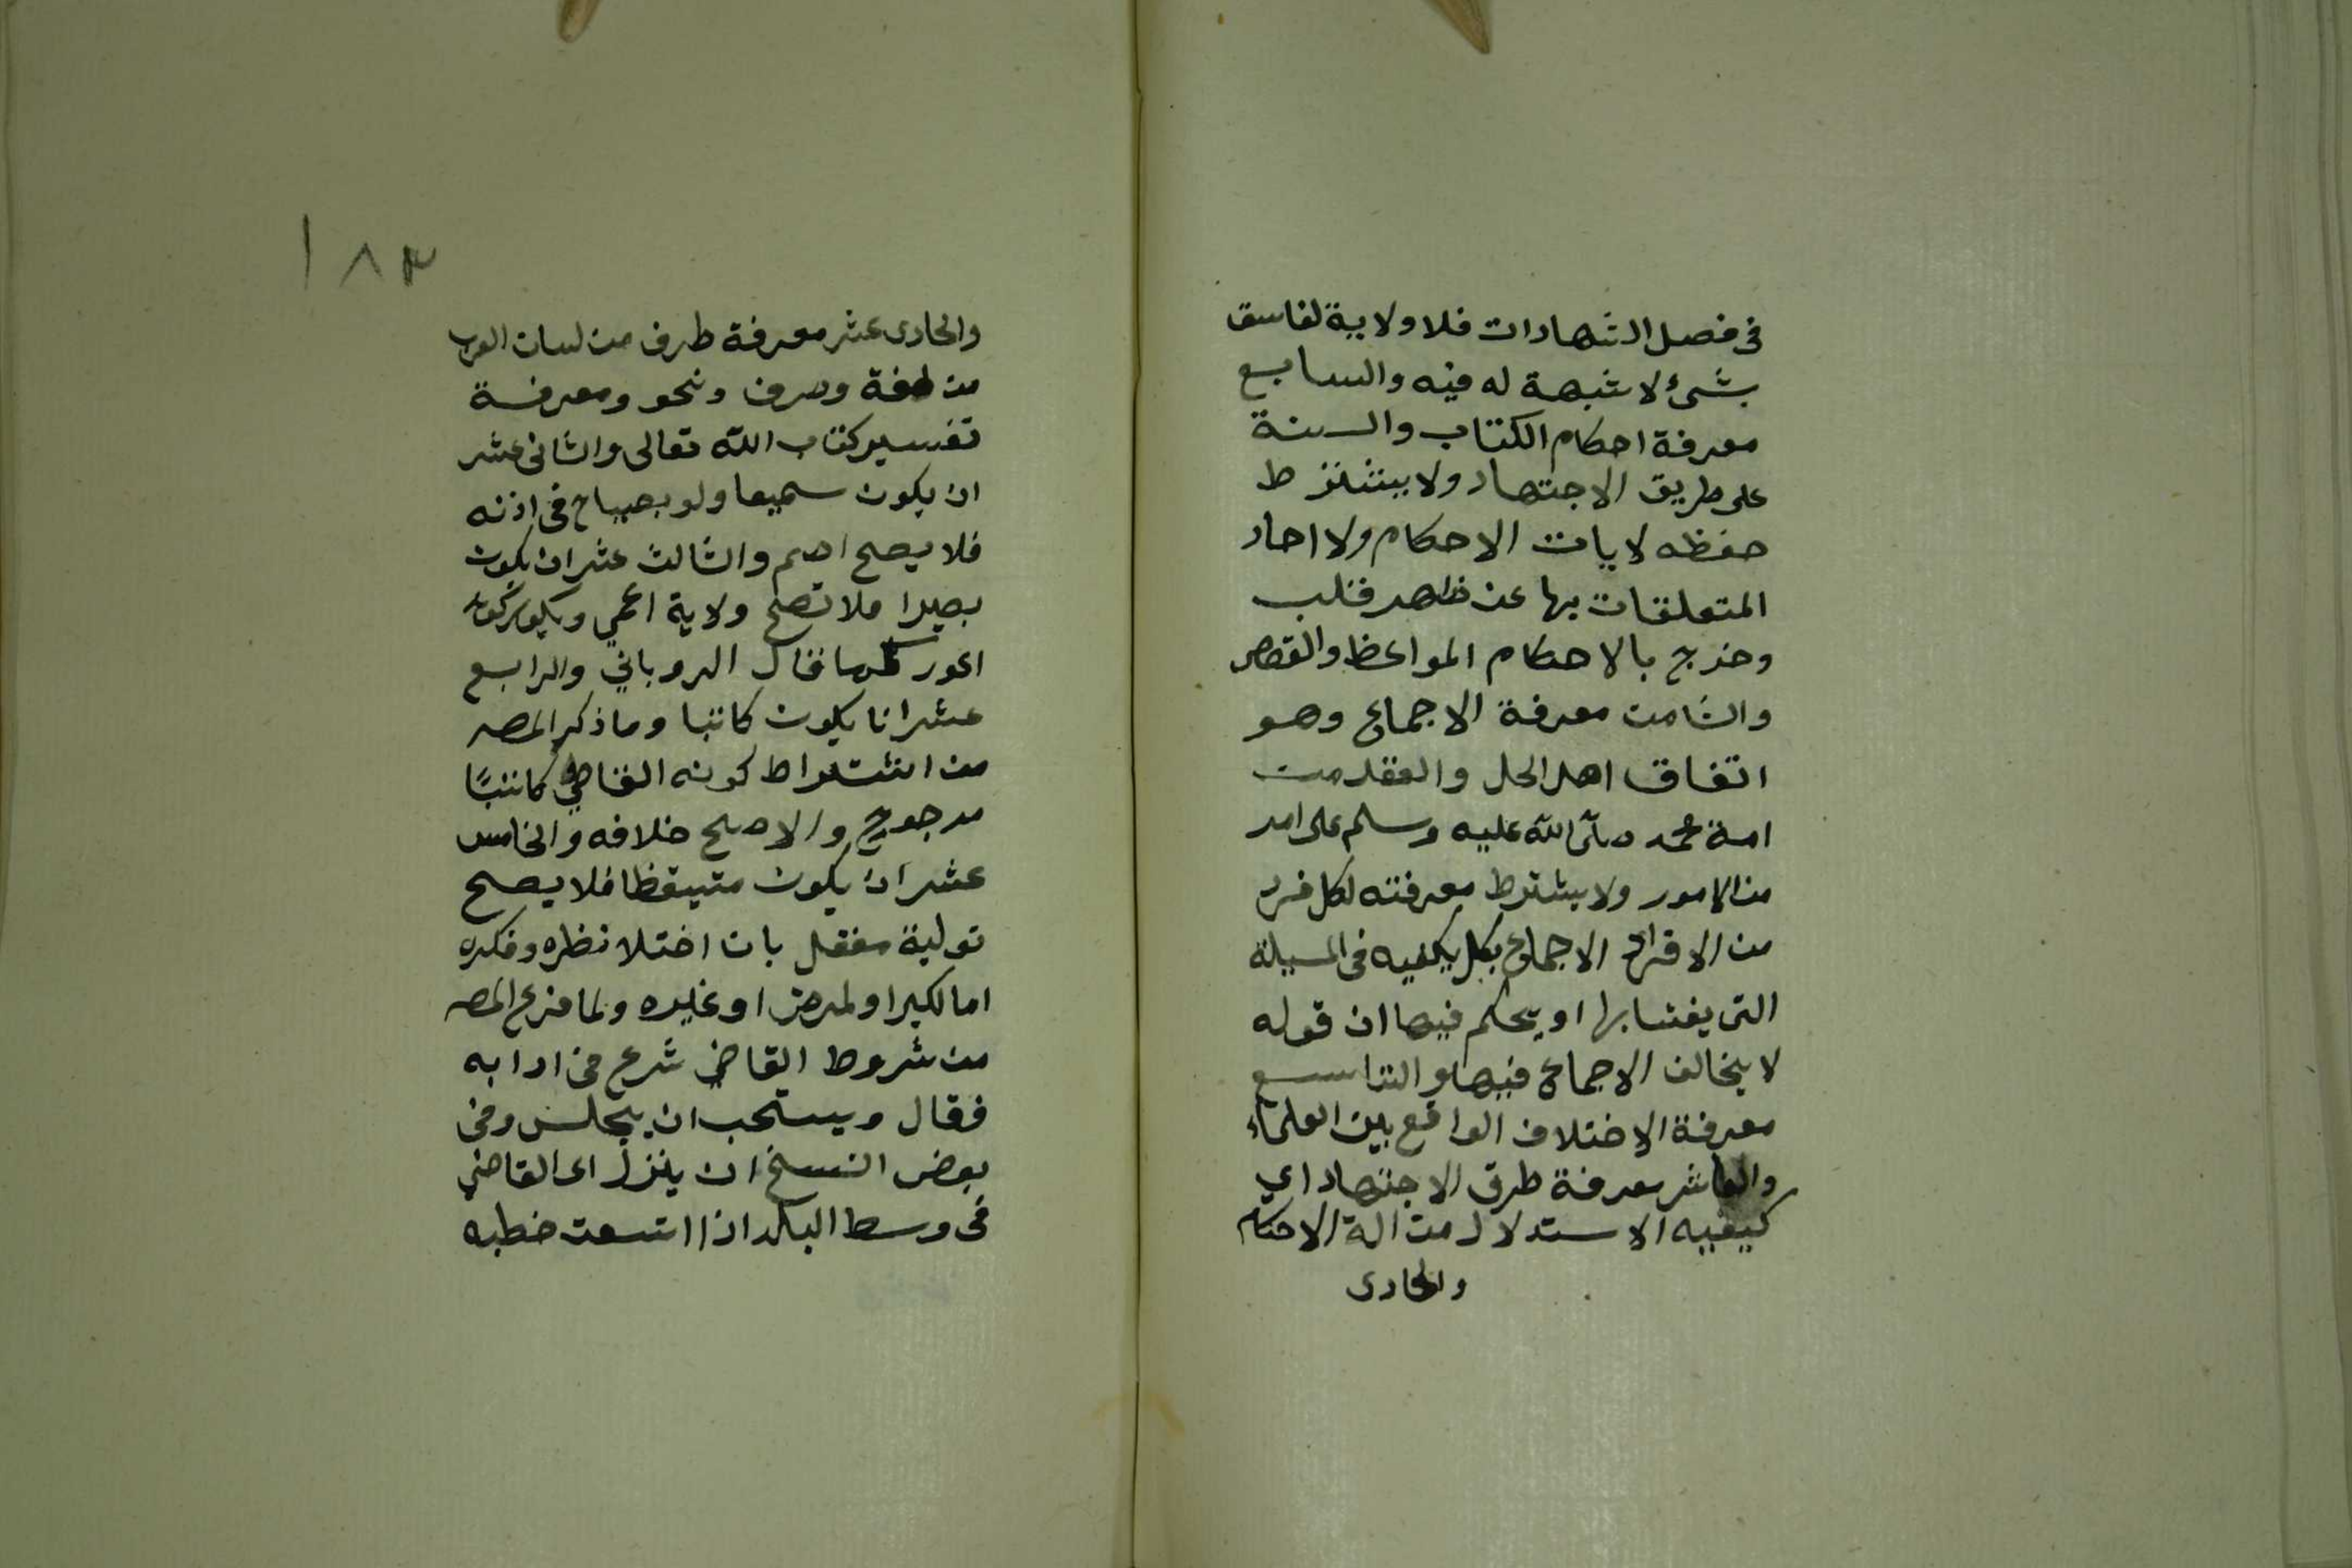 فى فصل الشهادات فلا ولاية لفاسق
بشىء لا شبهة له فيه والسابع
معرفة احكام الكتاب والسنة
على طريق الاجتهاد ولا يشترط
حفظه لايات الاحكام ولا احاد
المتعلقات بها عن ظهر قلب
وخرج بالاحكام المواعظ والقصص
والثامن معرفة الاجماع وهو
اتفاق اهل الحل والعقد من
امة محمد صلى الله عليه وسلم على امر
من الامور ولا يشترط معرفته لكل فرد
من الافراد الاجماع بكل يكفيه فى المسيلة
التى يفتى بها او يحكم فيها ان قوله
لا يخالف الاجماع فيها والتاسع
معرفة الاختلاف الواقع بين العلماء
والعاشر معرفة طرق الاجتهاد اي
كيفيه الاستدلال من الة الاحكام
والحادى
١٨٣
والحادى عشر معرفة طرف من لسان العرب
من لغة وصرف ونحو ومعرفة
تفسير كتاب الله تعالى والثانى عشر
ان يكون سميعا ولو بصياح فى اذنه
فلا يصح اصم والثالث عشر ان يكون
بصيرا فلا تصح ولاية اعمي ويكون كونه
اعور كما قال الروياني والرابع
عشر انا يكون كاتبا وما ذكر المصـ
من اشتراط كونه القاضي كاتبًا
مرجوح والاصح خلافه والخامس
عشر ان يكون متيقظا فلا يصح
تولية مغفل بان اختلا نظره وفكره
اما لكبر او لمرض او غيره ولما فرغ المصـ
من شروط القاضي شرع فى ادابه
فقال ويستحب ان يجلس وفى
بعض النسخ ان ينزل اى القاضي
فى وسط البلد اذا اتسعت خطبه